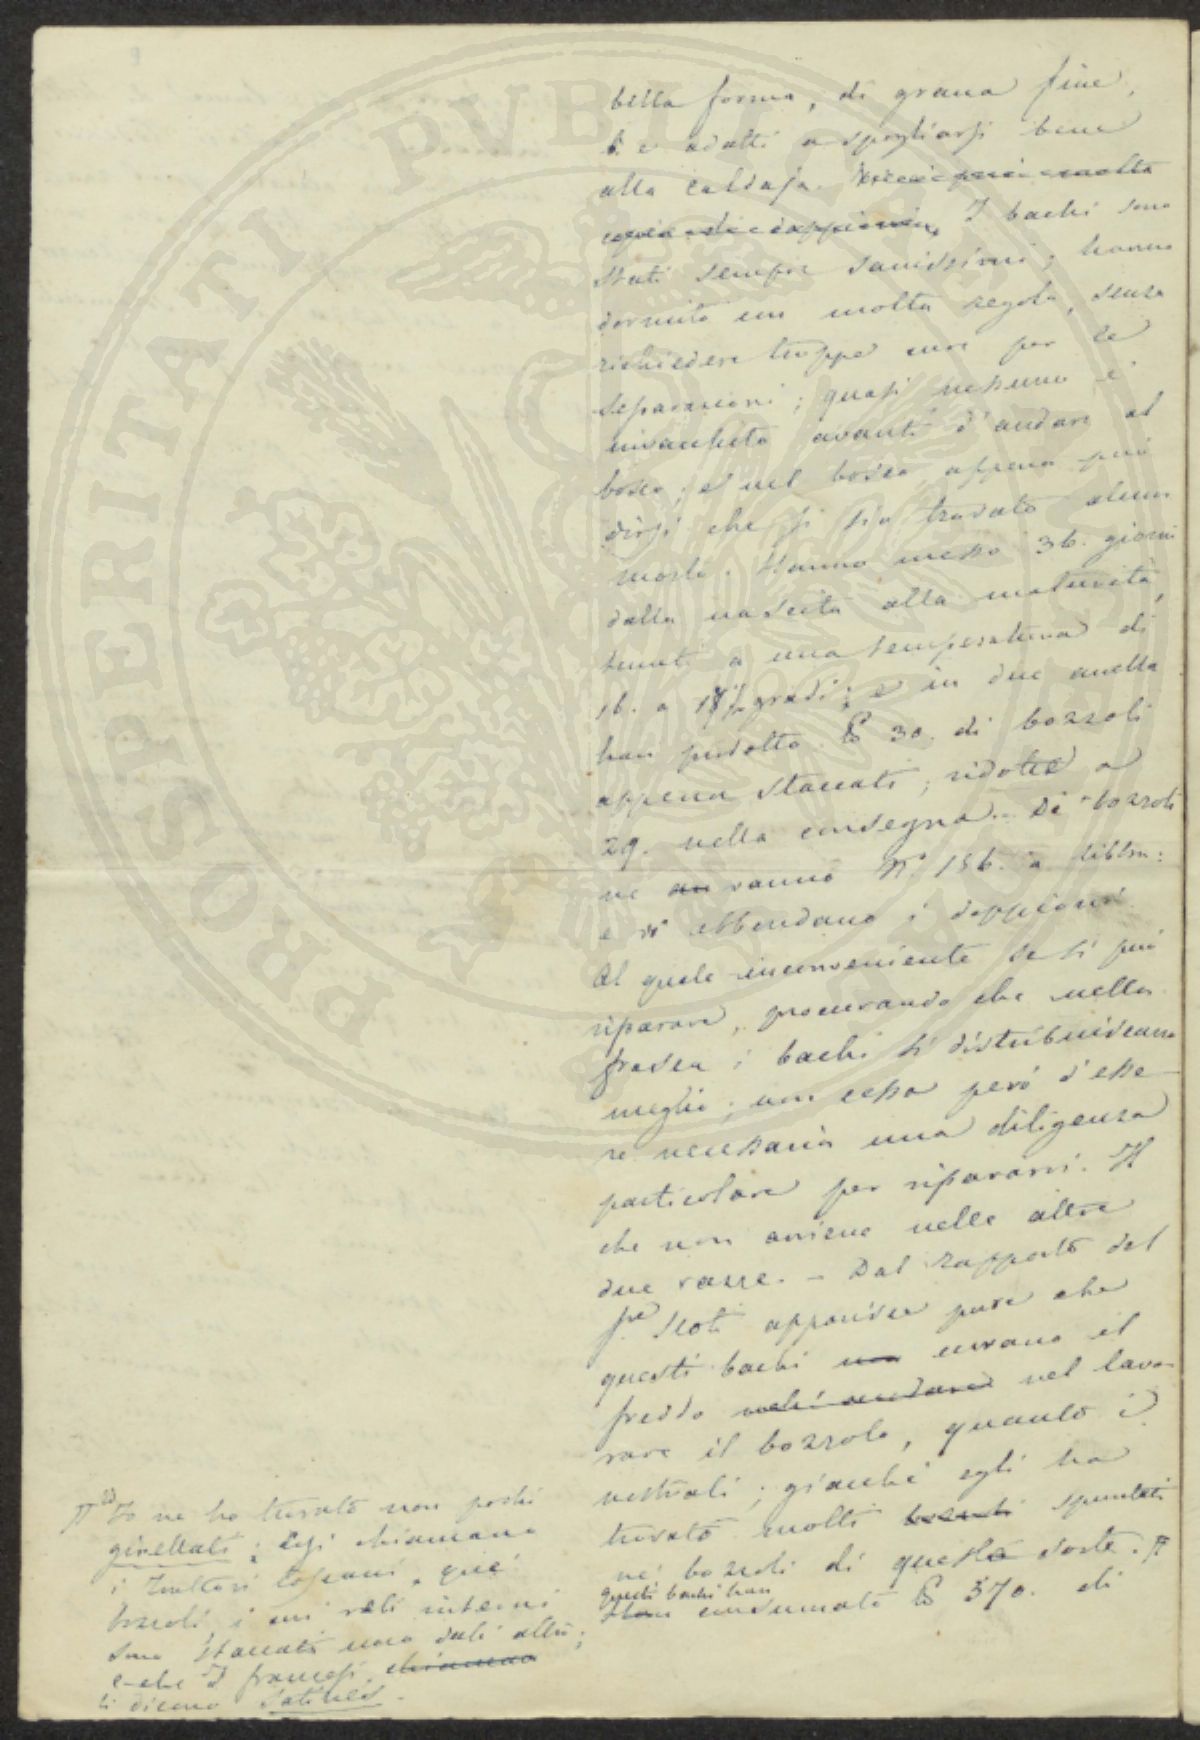 bella forma, di grana fine,
e adatti a spogliarsi bene
alla caldaja. però molta
copia di doppioni. I bachi sono
stati sempre sanissimi; hanno
dormito con molta regola, senza
richiedere troppe cure per le
separazioni; quasi nessuno è
invacchito avanti d'andare al
bosco; e nel bosco appena può
dirsi che si sia trovato alcun
morto. Hanno messo 36. giorni
dalla nascita alla maturità,
tenuti a una temperatura di
16. a gradi; e in due anella
han prodotto ℔ 30. di bozzoli
appena staccati; ridotte a
29. nella consegna. Di bozzoli
ne vanno N.° 156. a libbra:
e vi abbondano i doppioni.
Al quale inconveniente se si può
riparare, procurando che nella
frasca i bachi si distribuiscano
meglio; non cessa però d'esse-
re necessaria una diligenza
particolare per ripararvi. Il
che non avviene nelle altre
due razze. – Dal rapporto del
Scoti apparisce pure che
questi bachi non curano il
freddo nel lavo-
rare il bozzolo, quanto i
nostrali; giacchè egli ha
trovato molti bozzoli spuntati
ne' bozzoli di questa sorte. #
questi bachi han
Han consumato ℔ 370. di
# Io ne ho trovato non pochi
girellati; così chiamano
i Trattori toscani, quei
bozzoli, i cui veli interni
sono staccati uno dall' altro;
e che I francesi chiamano
li dicono Satinés.
PROPERITATI PVBLICAE